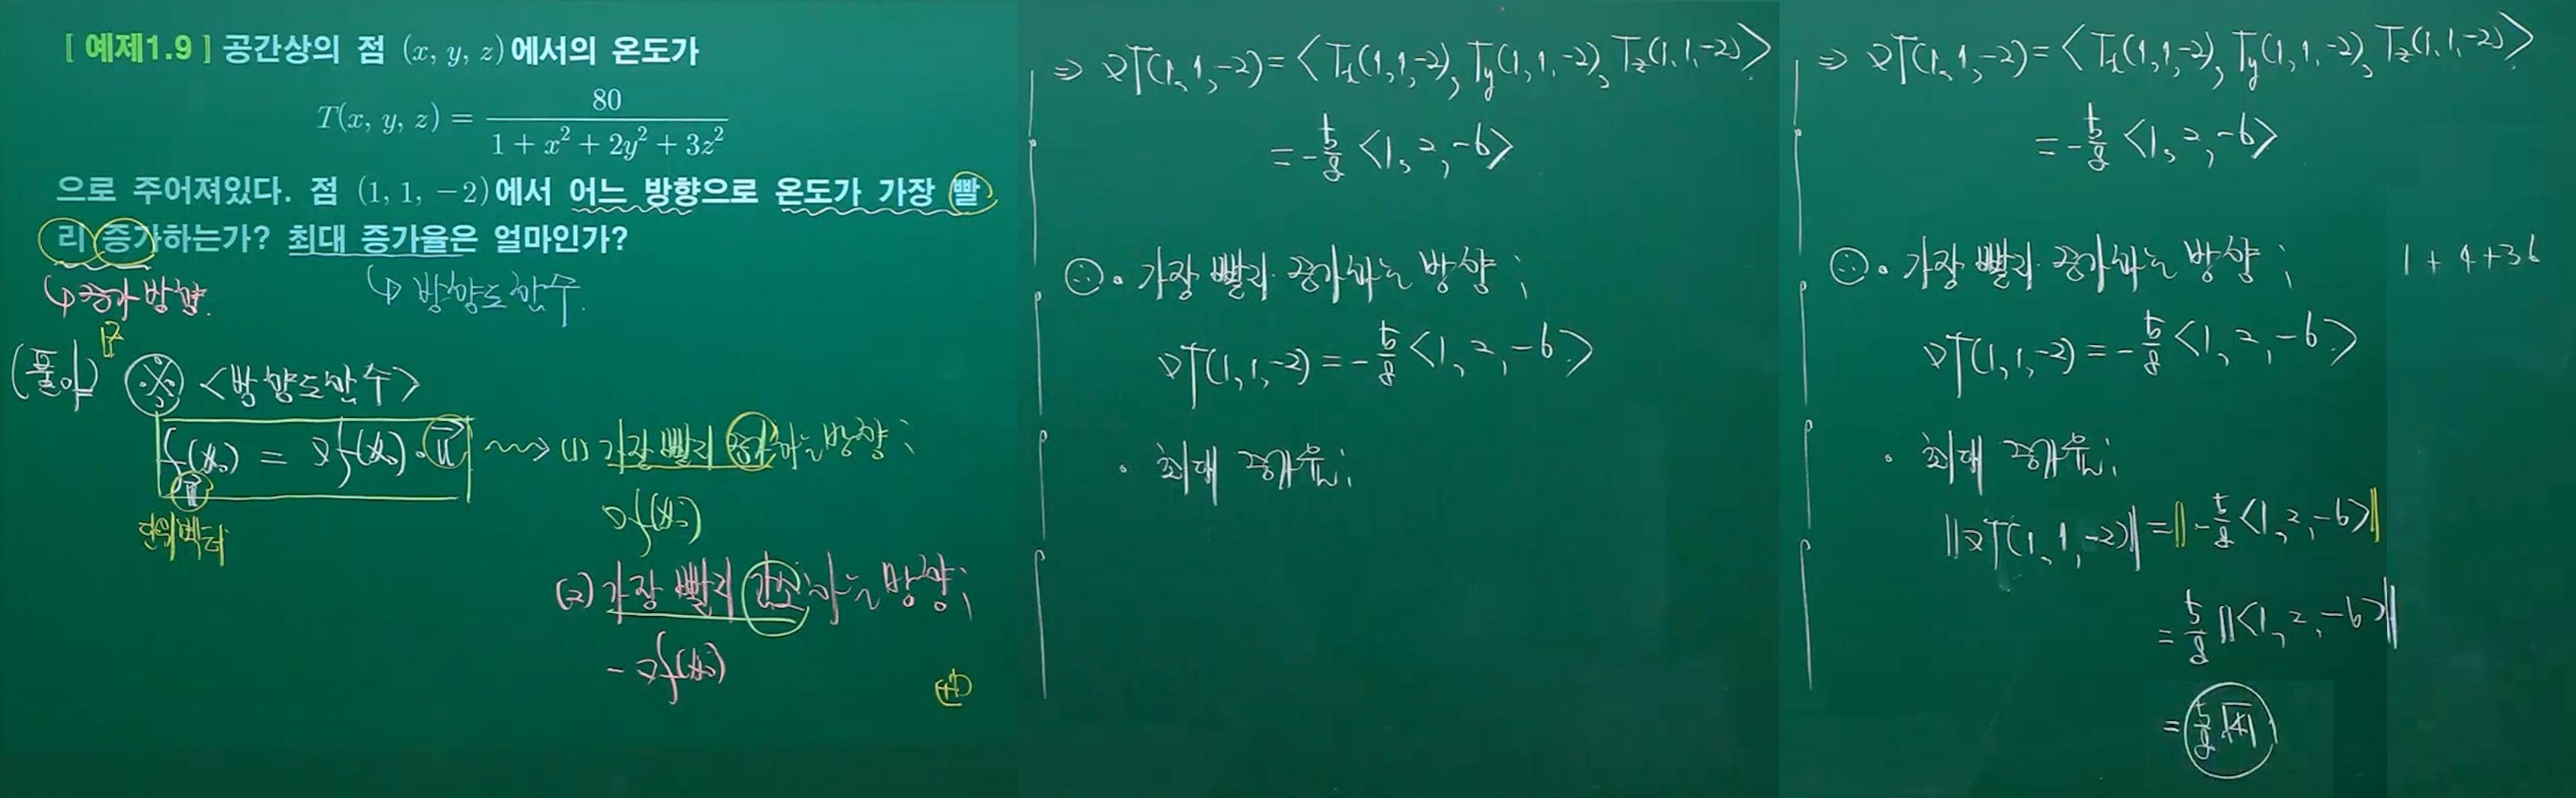 [ 예제1.9 ] 공간상의 점 (x, y, z)에서의 온도가
T(x, y, z) = 80 / (1 + x² + 2y² + 3z²)
으로 주어져있다. 점 (1, 1, −2)에서 어느 방향으로 온도가 가장 빨
리 증가하는가? 최대 증가율은 얼마인가?
↳ 증가 방향.
↳ 방향도함수.
(풀이)
<방향도함수>
f(x₀) = ∇f(x₀)·u⃗
u⃗
단위벡터
(1) 가장 빨리 증가하는 방향;
∇f(x₀)
(2) 가장 빨리 감소하는 방향;
-∇f(x₀)
⇒ ∇T(1, 1, -2) = <Tx(1, 1, -2), Ty(1, 1, -2), Tz(1, 1, -2)>
= -5/8 <1, 2, -6>
∴ • 가장 빨리 증가하는 방향;
∇T(1, 1, -2) = -5/8 <1, 2, -6>
• 최대 증가율;
⇒ ∇T(1, 1, -2) = <Tx(1, 1, -2), Ty(1, 1, -2), Tz(1, 1, -2)>
= -5/8 <1, 2, -6>
∴ • 가장 빨리 증가하는 방향;
1 + 4 + 36
∇T(1, 1, -2) = -5/8 <1, 2, -6>
• 최대 증가율;
||∇T(1, 1, -2)|| = ||-5/8 <1, 2, -6>||
= 5/8 ||<1, 2, -6>||
= 5/8 √41